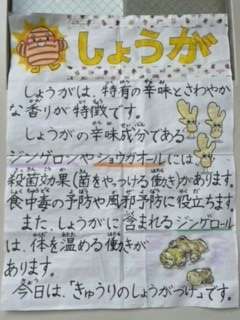 しょうが
しょうがは、特有の辛味とさわやか
な香りが特徴です。
しょうがの辛味成分である
ジンゲロンやショウガオールには、
殺菌効果(菌をやっつける働き)があります。
食中毒の予防や風邪予防に役立ちます
また、しょうがに含まれるジンゲロール
は、体を温める働きが
あります。
今日は、「きゅうりのしょうがづけ」です。